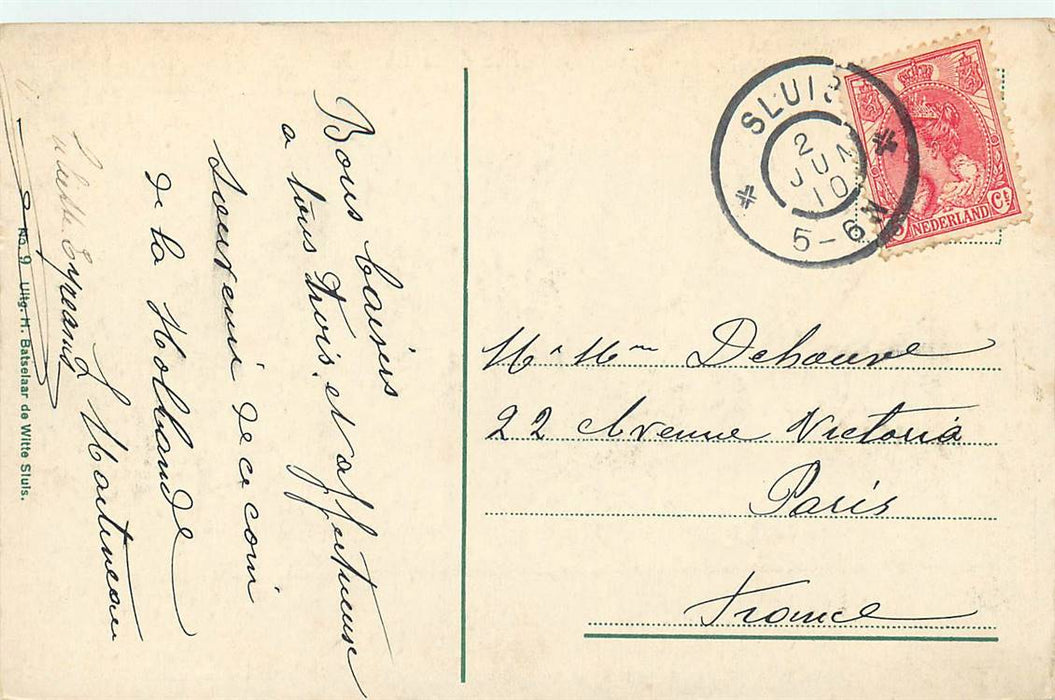 Bons baisers
a tous trois, et affectueuse
souvenir de ce coin
de la Hollande
L Martineau
SLUIS
2
JUN
10
5-6N
5 NEDERLAND Ct
Mr Mme Dehouve
22 Avenue Victoria
Paris
France
No. 9 Uitg. H. Batselaar de Witte Sluis.